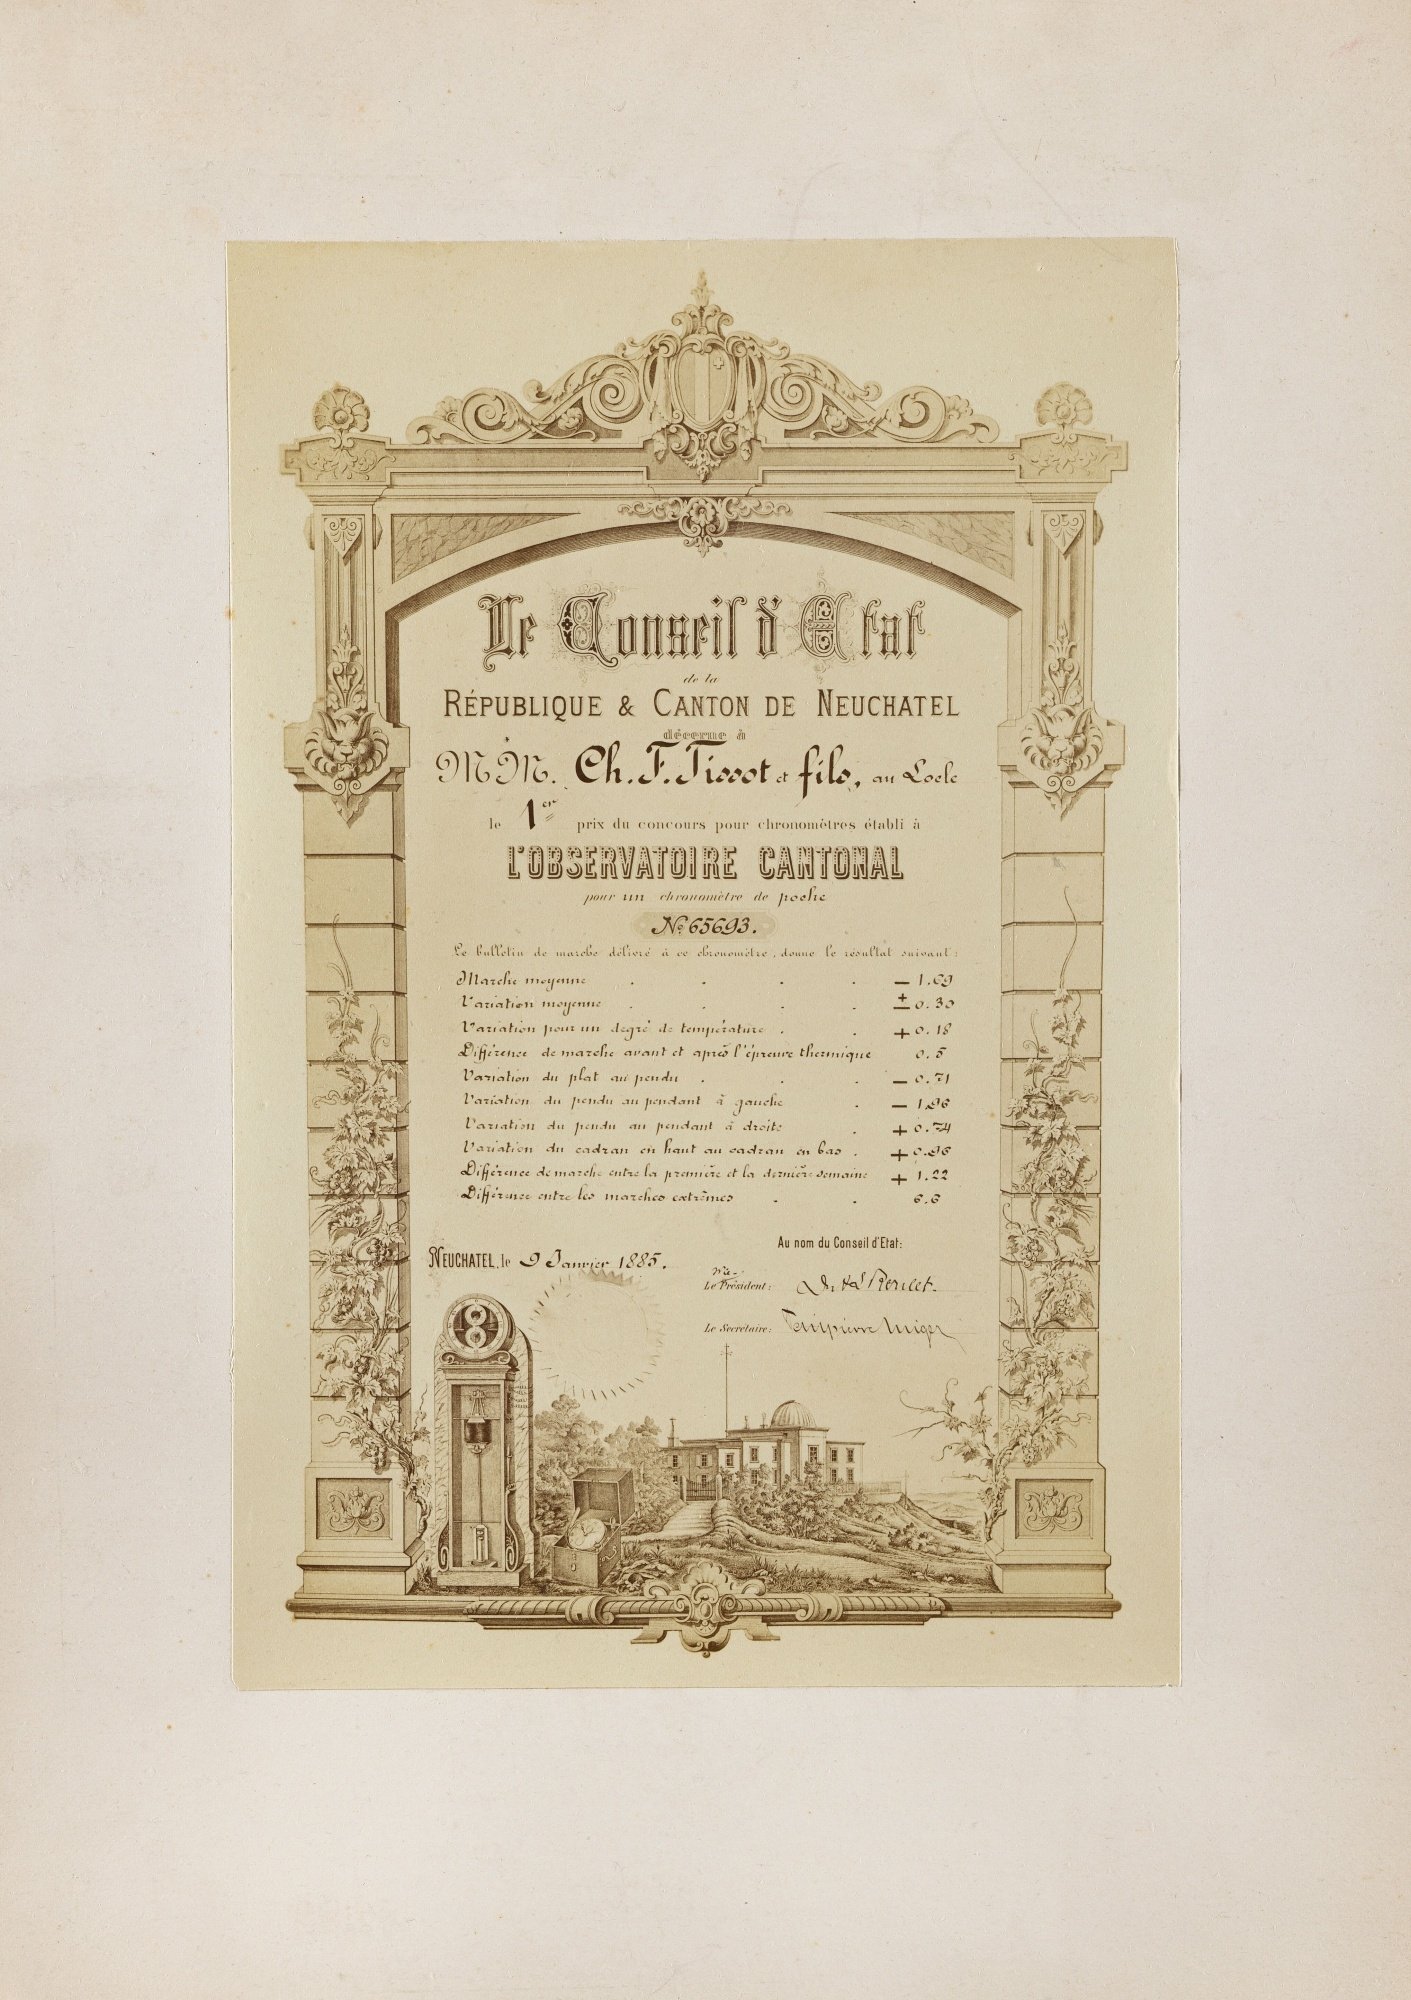 Le Conseil d'Etat
de la
RÉPUBLIQUE & CANTON DE NEUCHATEL
décerne à
MM. Ch. F. Tissot et fils, au Locle
le 1er prix du concours pour chronomètres établi à
L'OBSERVATOIRE CANTONAL
pour un chronomètre de poche
No 65693.
Le bulletin de marche délivré à ce chronomètre, donne le résultat suivant:
Marche moyenne . . . . — 1.69
Variation moyenne . . . . ± 0.30
Variation pour un degré de température . . + 0.18
Différence de marche avant et après l'épreuve thermique 0.5
Variation du plat au pendu . . . — 0.71
Variation du pendu au pendant à gauche . — 1.96
Variation du pendu au pendant à droite . + 0.74
Variation du cadran en haut au cadran en bas . + 0.96
Différence de marche entre la première et la dernière semaine + 1.22
Différence entre les marches extrêmes . . 6.6
NEUCHATEL, le 9 Janvier 1885.
Au nom du Conseil d'Etat:
Le Président:
Le Secrétaire: